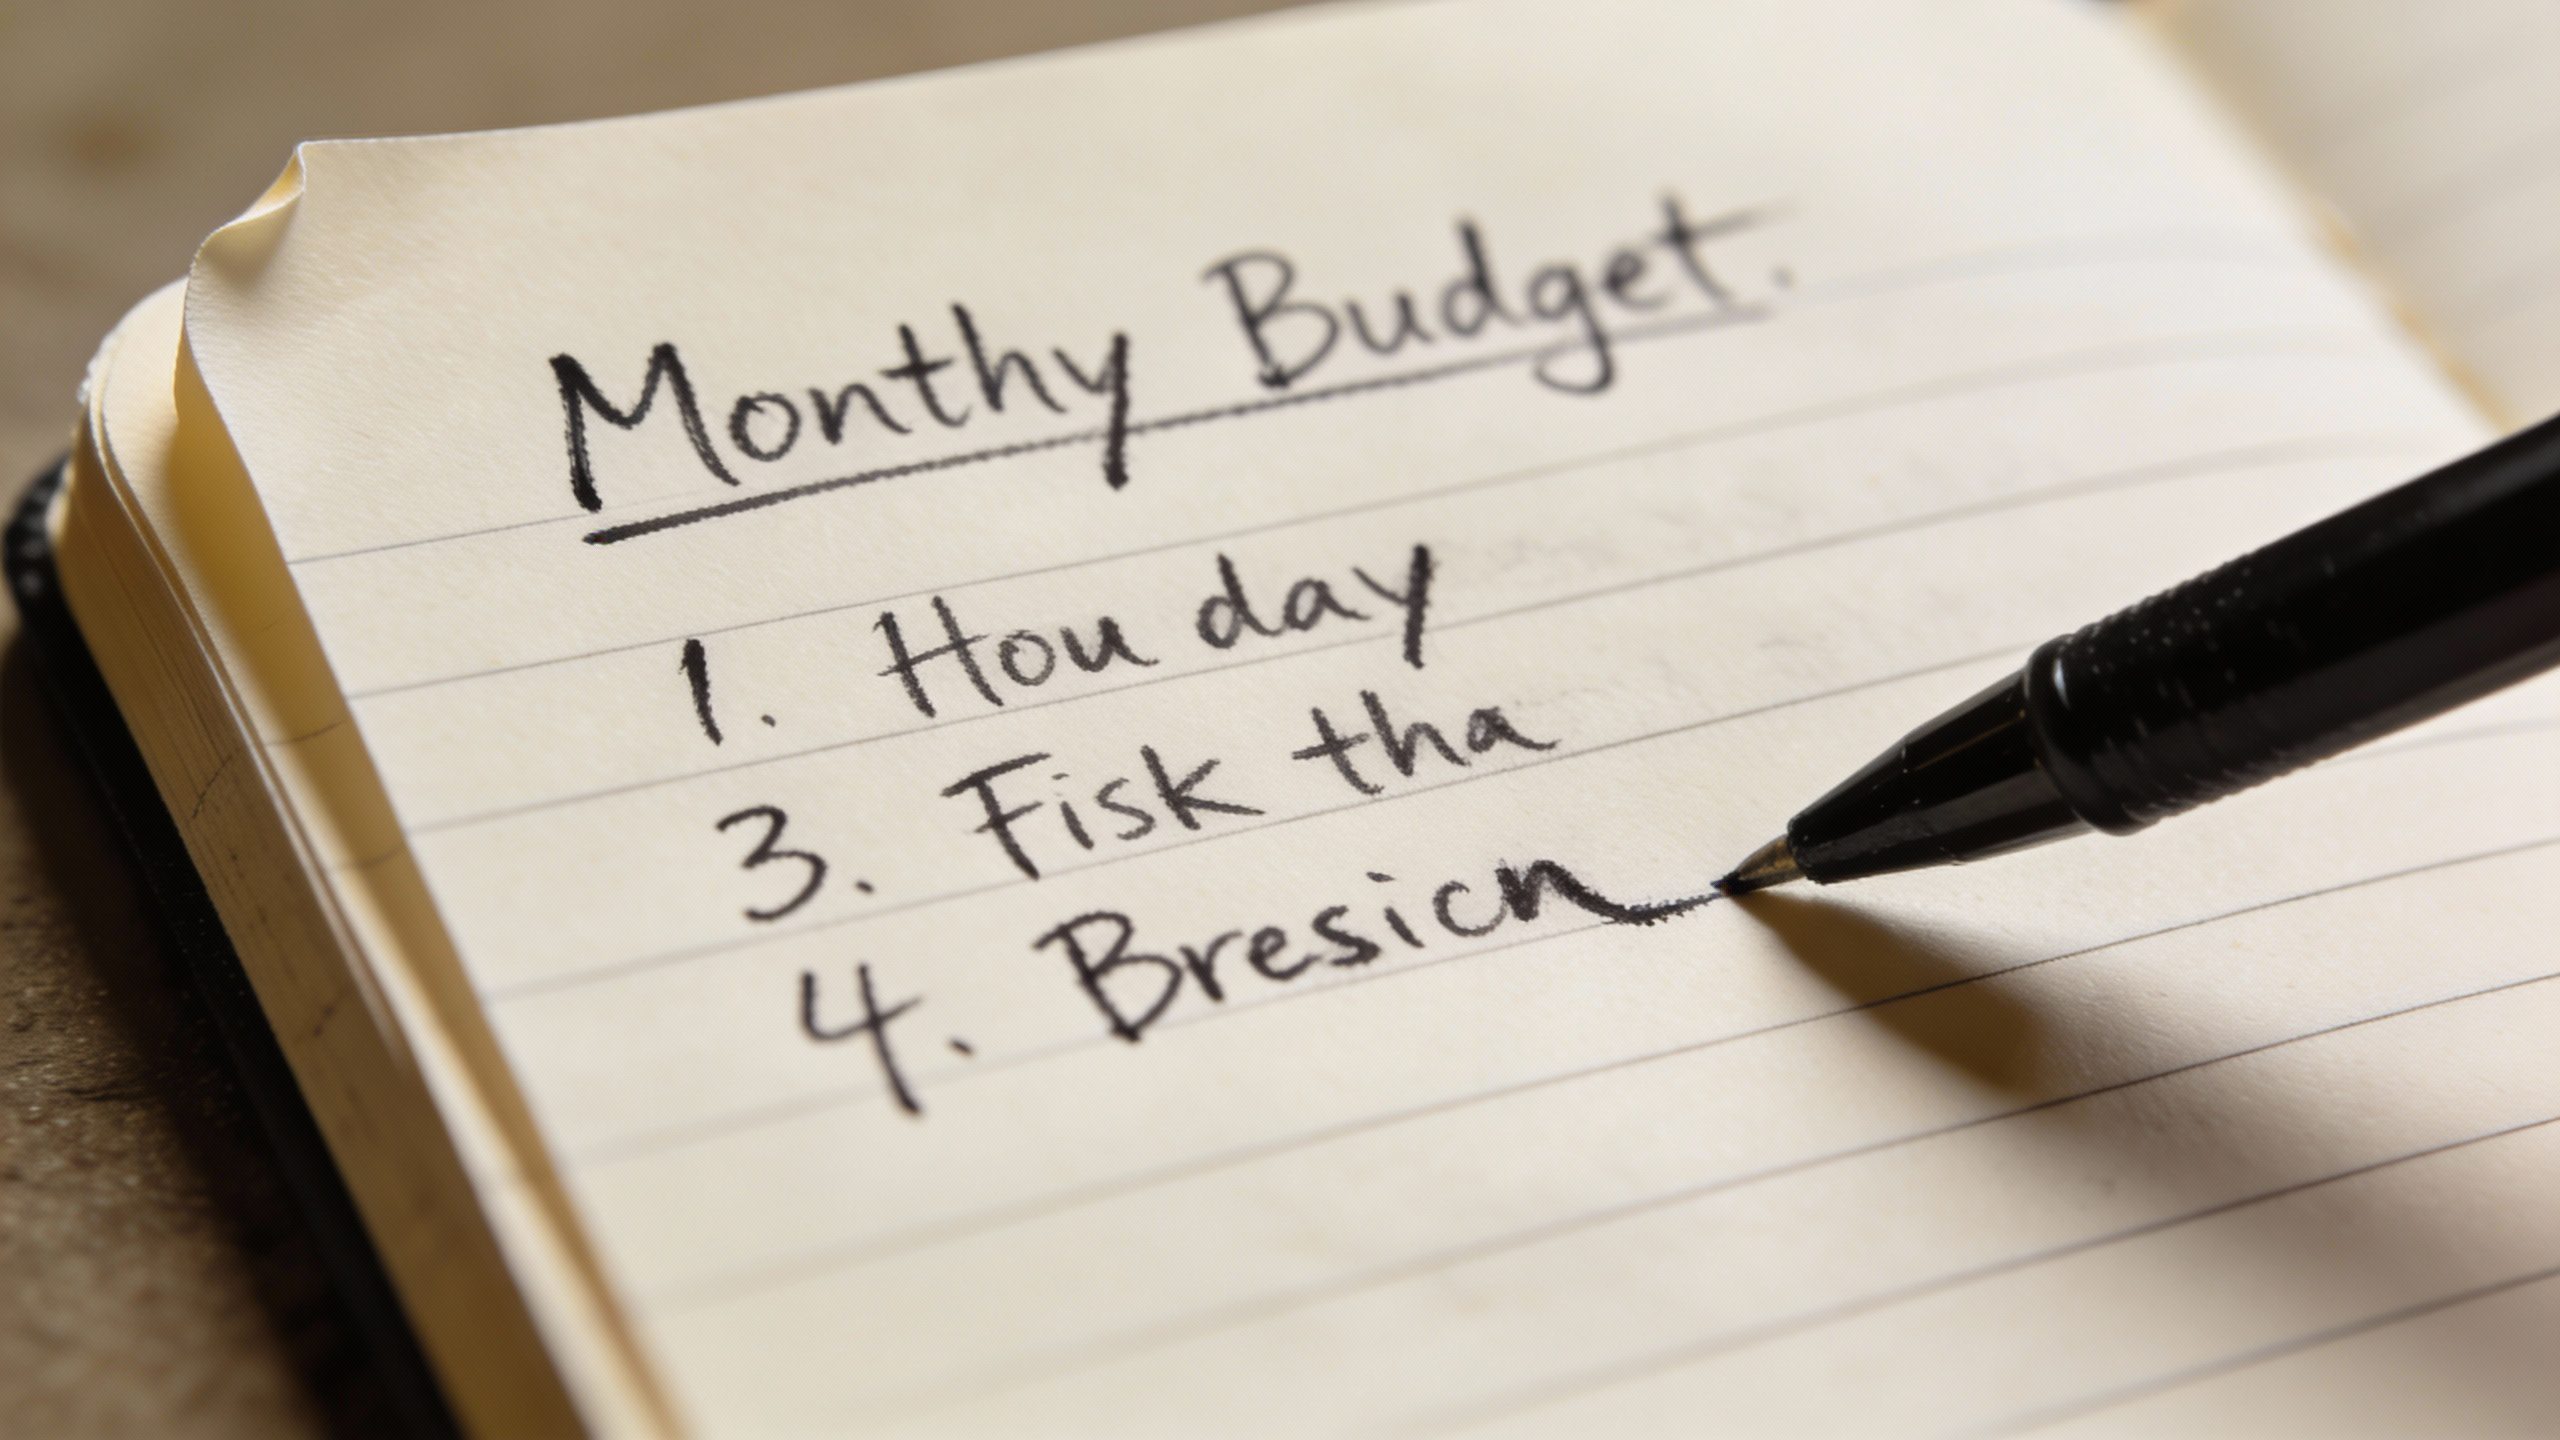 Monthy Budget.
1. Hou day
3. Fisk tha
4. Bresicn